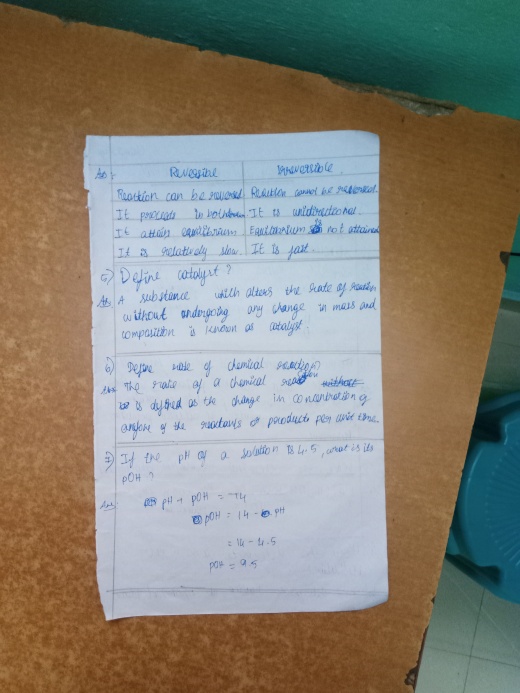 Ans: Reversible Irreversible
Reaction can be reversed Reaction cannot be reversed.
It proceeds in both It is unidirectional.
It attains equilibrium Equilibrium is not attained
It is relatively slow. It is fast.
5) Define catalyst?
Ans A substance which alters the rate of reaction
without undergoing any change in mass and
composition is known as catalyst.
6) Define rate of chemical reaction?
Ans The rate of a chemical reaction without
is defined as the change in concentration of
anyone of the reactants or products per unit time.
7) If the pH of a solution is 4.5, what is its
pOH?
Ans: pH + pOH = 14
pOH = 14 - pH
= 14 - 4.5
pOH = 9.5